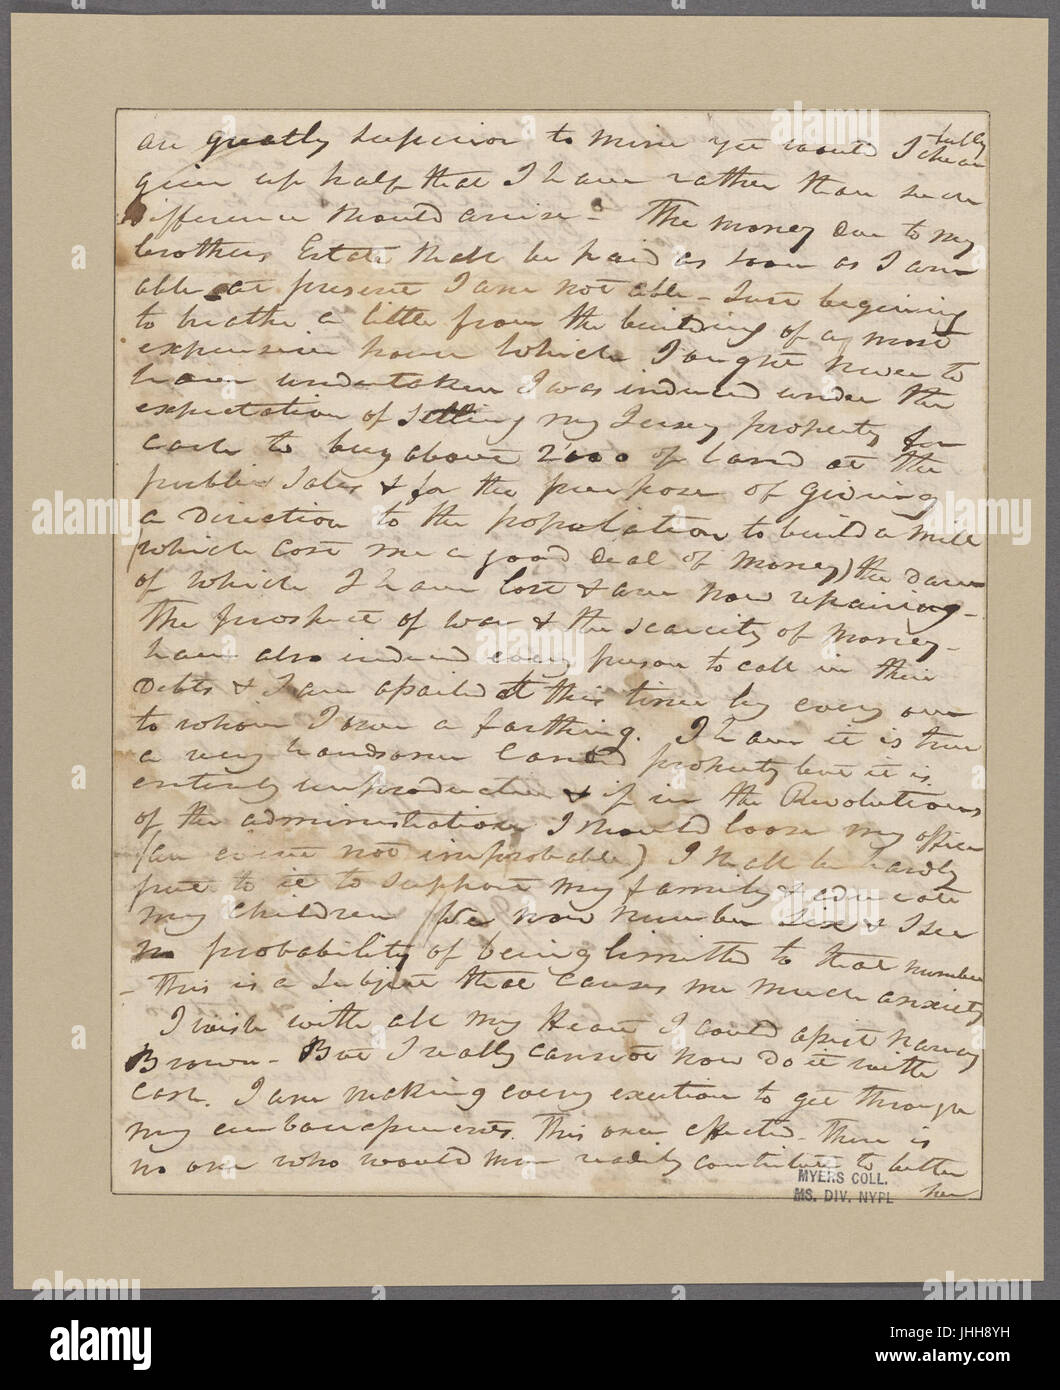 are greatly superior to mine yet would I chear
fully
give up half that I have rather than such
difference should arise - The money due to my
brothers Estate shall be paid as soon as I am
able at present I am not able - Just begining
to breathe a little from the building of a most
expensive house which I ought never to
have undertaken I was induced under the
expectation of selling my Jersey property for
cash to buy above 2000 of land at the
public Sales & for the purpose of giving
a direction to the population to build a mill
(which cost me a good deal of money) the dam
of which I have lost & am now repairing -
The prospect of war & the scarcity of money -
have also induced every person to call in their
Debts & I am assailed at this time by every one
to whom I owe a farthing. I have it is true
a very handsome landed property but it is
entirely unproductive & if in the Revolutions
of the administration I should loose my office
(an event not improbable) I shall be hardly
put to it to support my family & educate
my children We now number six & I see
no probability of being limitted to that number
- This is a Subject that causes me much anxiety
I wish with all my Heart I could assist Nancy
Brown - But I really cannot now do it with
cash. I am making every exertion to get through
my embarassments. This once effected - there is
no one who would more readily contribute to better
her
MYERS COLL.
MS. DIV. NYPL
alamy
Image ID: JHH8YH
www.alamy.com